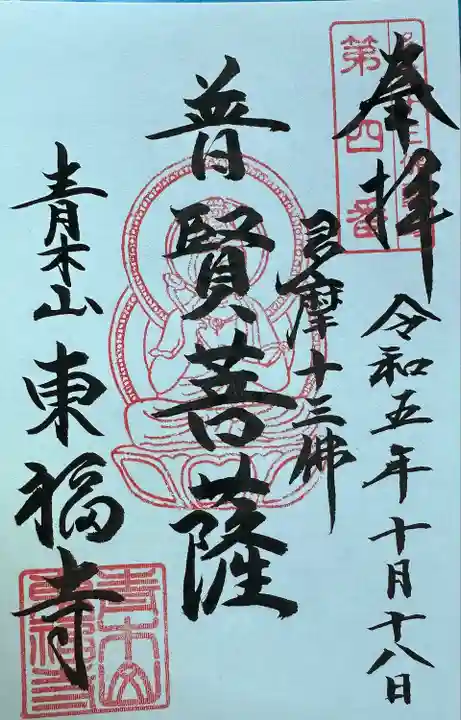 奉拝
令和五年十月十八日
第四番
多摩十三佛
普賢菩薩
青木山東福寺